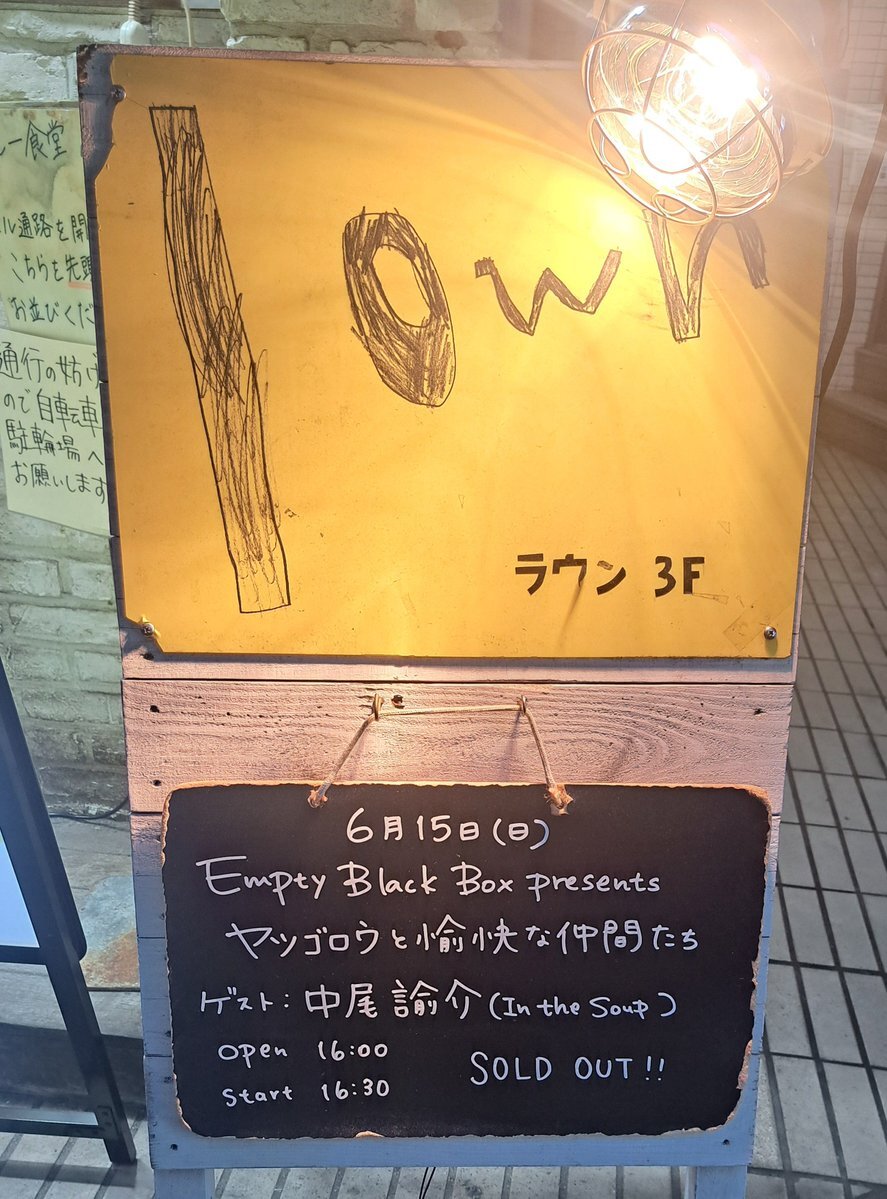 lown
ラウン 3F
6月15日(日)
Empty Black Box presents
ヤツゴロウと愉快な仲間たち
ゲスト: 中尾諭介 (In the Soup)
open 16:00
start 16:30
SOLD OUT!!
ー食堂
ル通路を開
こちらを先頭
お並びくだ
通行の妨げ
ので自転車
駐輪場へ
お願いします